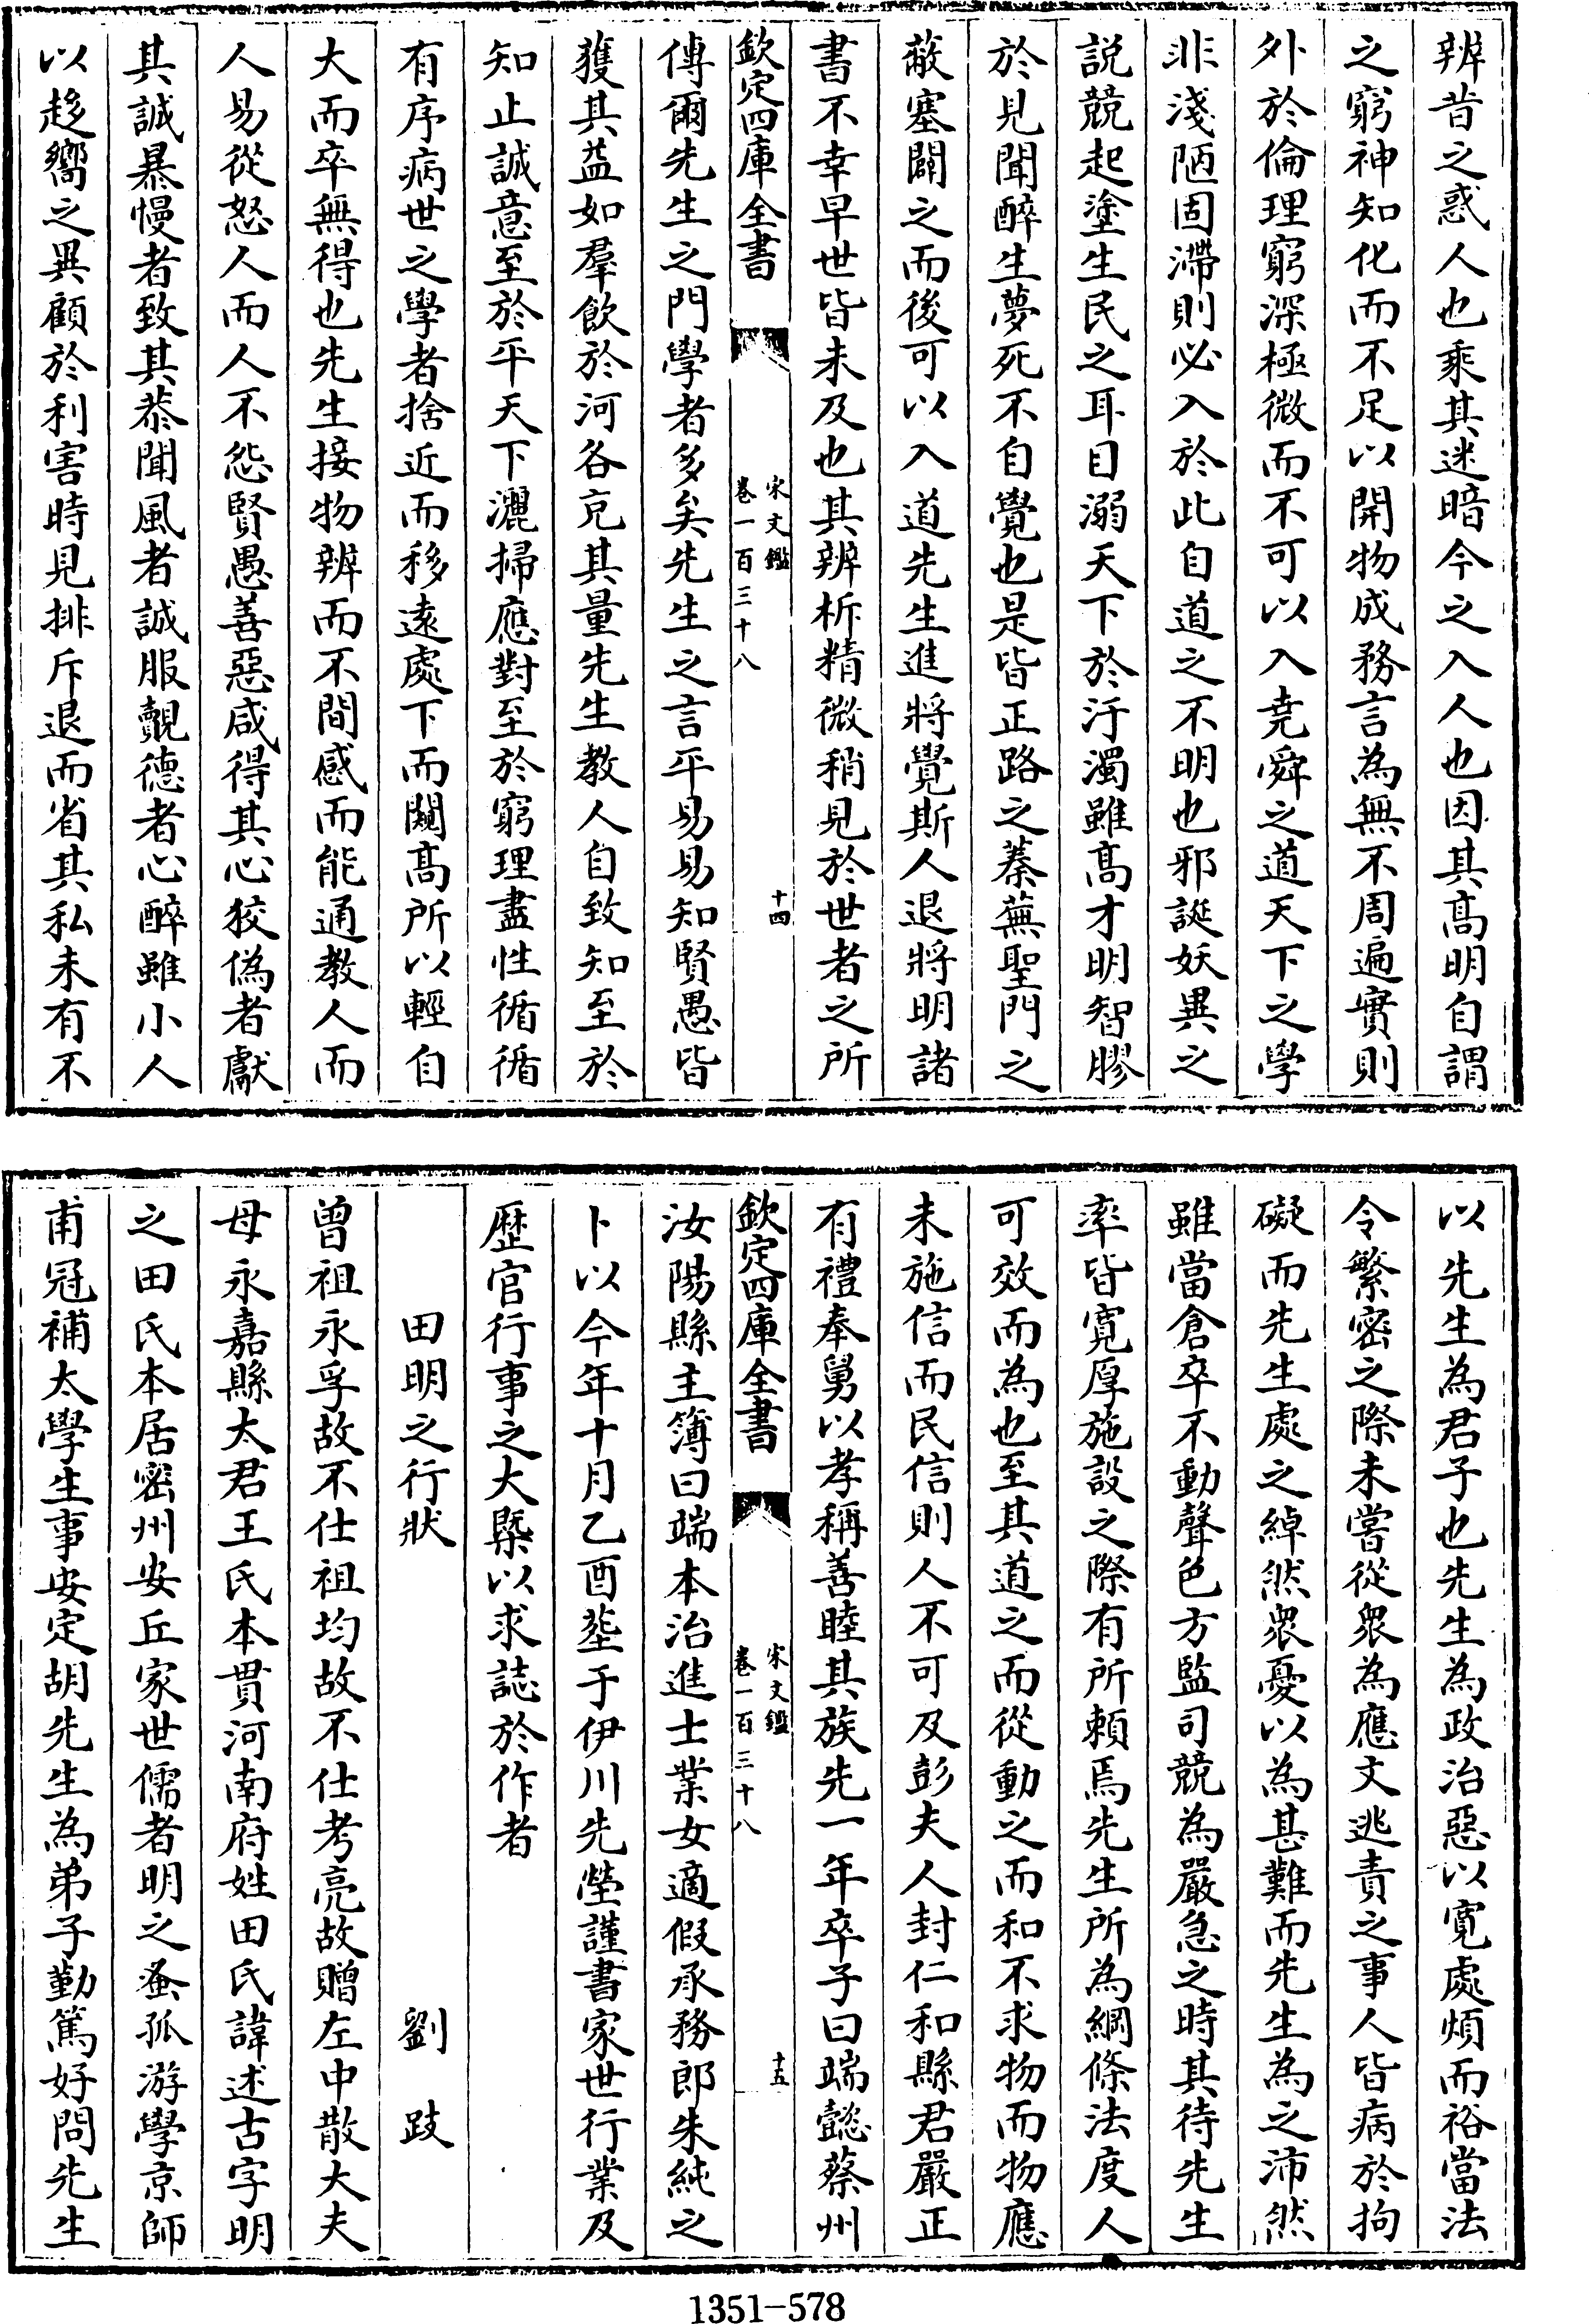 辨昔之惑人也乘其迷暗今之入人也因其髙明自謂
之窮神知化而不足以開物成務言為無不周遍實則
外於倫理窮深極微而不可以入堯舜之道天下之學
非淺陋固滯則必入於此自道之不明也邪誕妖異之
説競起塗生民之耳目溺天下於汙濁雖髙才明智膠
於見聞醉生夢死不自覺也是皆正路之蓁蕪聖門之
蔽塞闢之而後可以入道先生進將覺斯人退將明諸
書不幸早世皆未及也其辨析精微稍見於世者之所
欽定四庫全書
宋文鑑
卷一百三十八
十四
傳爾先生之門學者多矣先生之言平易易知賢愚皆
獲其益如羣飲於河各充其量先生教人自致知至於
知止誠意至於平天下灑掃應對至於窮理盡性循循
有序病世之學者捨近而移逺處下而闚髙所以輕自
大而卒無得也先生接物辨而不間感而能通教人而
人易從怒人而人不怨賢愚善惡咸得其心狡偽者獻
其誠暴慢者致其恭聞風者誠服覿德者心醉雖小人
以趍嚮之異顧於利害時見排斥退而省其私未有不
以先生為君子也先生為政治惡以寛處煩而裕當法
令繁密之際未嘗從衆為應文逃責之事人皆病於拘
礙而先生處之綽然衆憂以為甚難而先生為之沛然
雖當倉卒不動聲色方監司競為嚴急之時其待先生
率皆寛厚施設之際有所賴焉先生所為綱條法度人
可效而為也至其道之而從動之而和不求物而物應
未施信而民信則人不可及彭夫人封仁和縣君嚴正
有禮奉舅以孝稱善睦其族先一年卒子曰端懿蔡州
欽定四庫全書
宋文鑑
卷一百三十八
十五
汝陽縣主簿曰端本治進士業女適假承務郎朱純之
卜以今年十月乙酉塟于伊川先塋謹書家世行業及
歴官行事之大槩以求誌於作者
田明之行狀　劉　跂
曽祖永孚故不仕祖均故不仕考亮故贈左中散大夫
母永嘉縣太君王氏本貫河南府姓田氏諱述古字明
之田氏本居密州安丘家世儒者明之蚤孤游學京師
甫冠補太學生事安定胡先生為弟子勤篤好問先生
1351-578